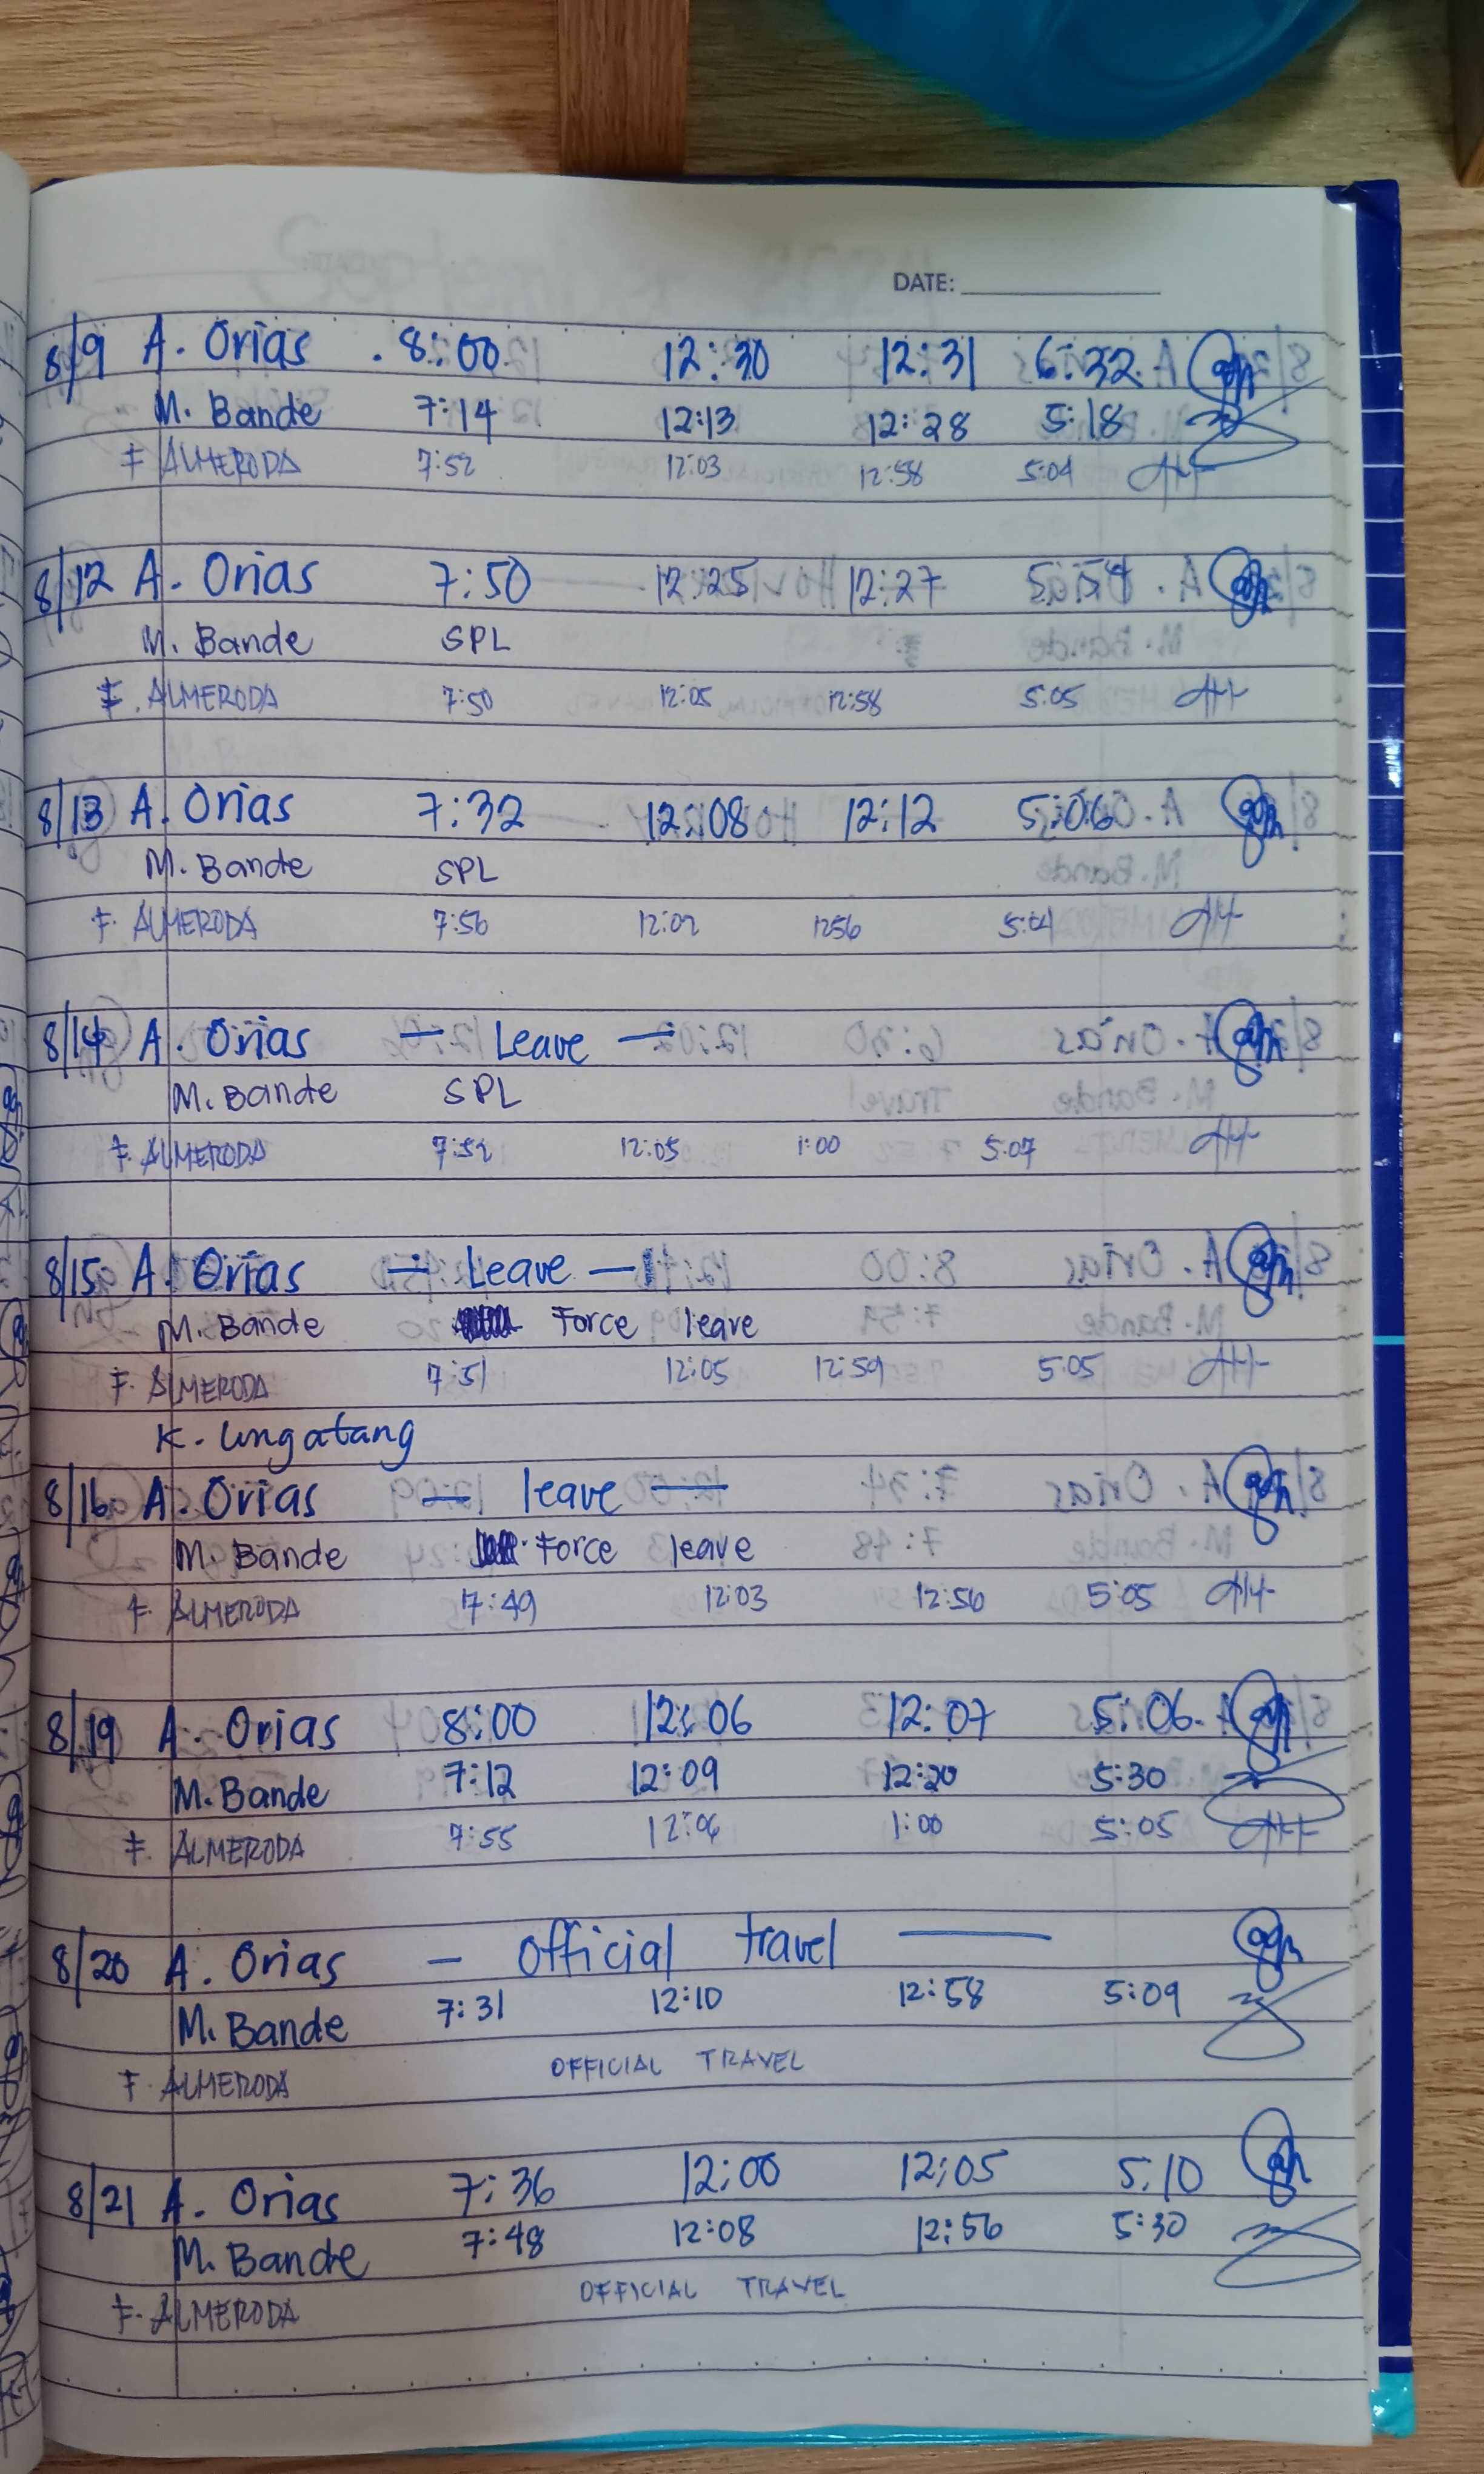 DATE:
8/9 A. Orias 8:00 12:30 12:31 6:32
M. Bande 7:14 12:13 12:28 5:18
F ALMERODA 7:52 12:03 12:58 5:04
8/12 A. Orias 7:50 12:25 12:27
M. Bande SPL
F. ALMERODA 7:50 12:05 12:58 5:05
8/13 A. Orias 7:32 12:08 12:12 5:06
M. Bande SPL
F. ALMERODA 7:56 12:02 1256 5:04
8/14 A. Orias — Leave —
M. Bande SPL
F. ALMERODA 7:52 12:05 1:00 5:07
8/15 A. Orias — Leave —
M. Bande Force leave
F. ALMERODA 7:51 12:05 12:59 5:05
K. Ungatang
8/16 A. Orias — leave —
M. Bande Force leave
F. ALMERODA 7:49 12:03 12:56 5:05
8/19 A. Orias 8:00 12:06 12:07 5:06
M. Bande 7:12 12:09 12:20 5:30
F. ALMERODA 7:55 12:06 1:00 5:05
8/20 A. Orias — official travel —
M. Bande 7:31 12:10 12:58 5:09
F. ALMERODA OFFICIAL TRAVEL
8/21 A. Orias 7:36 12:00 12:05 5:10
M. Bande 7:48 12:08 12:56 5:30
F. ALMERODA OFFICIAL TRAVEL